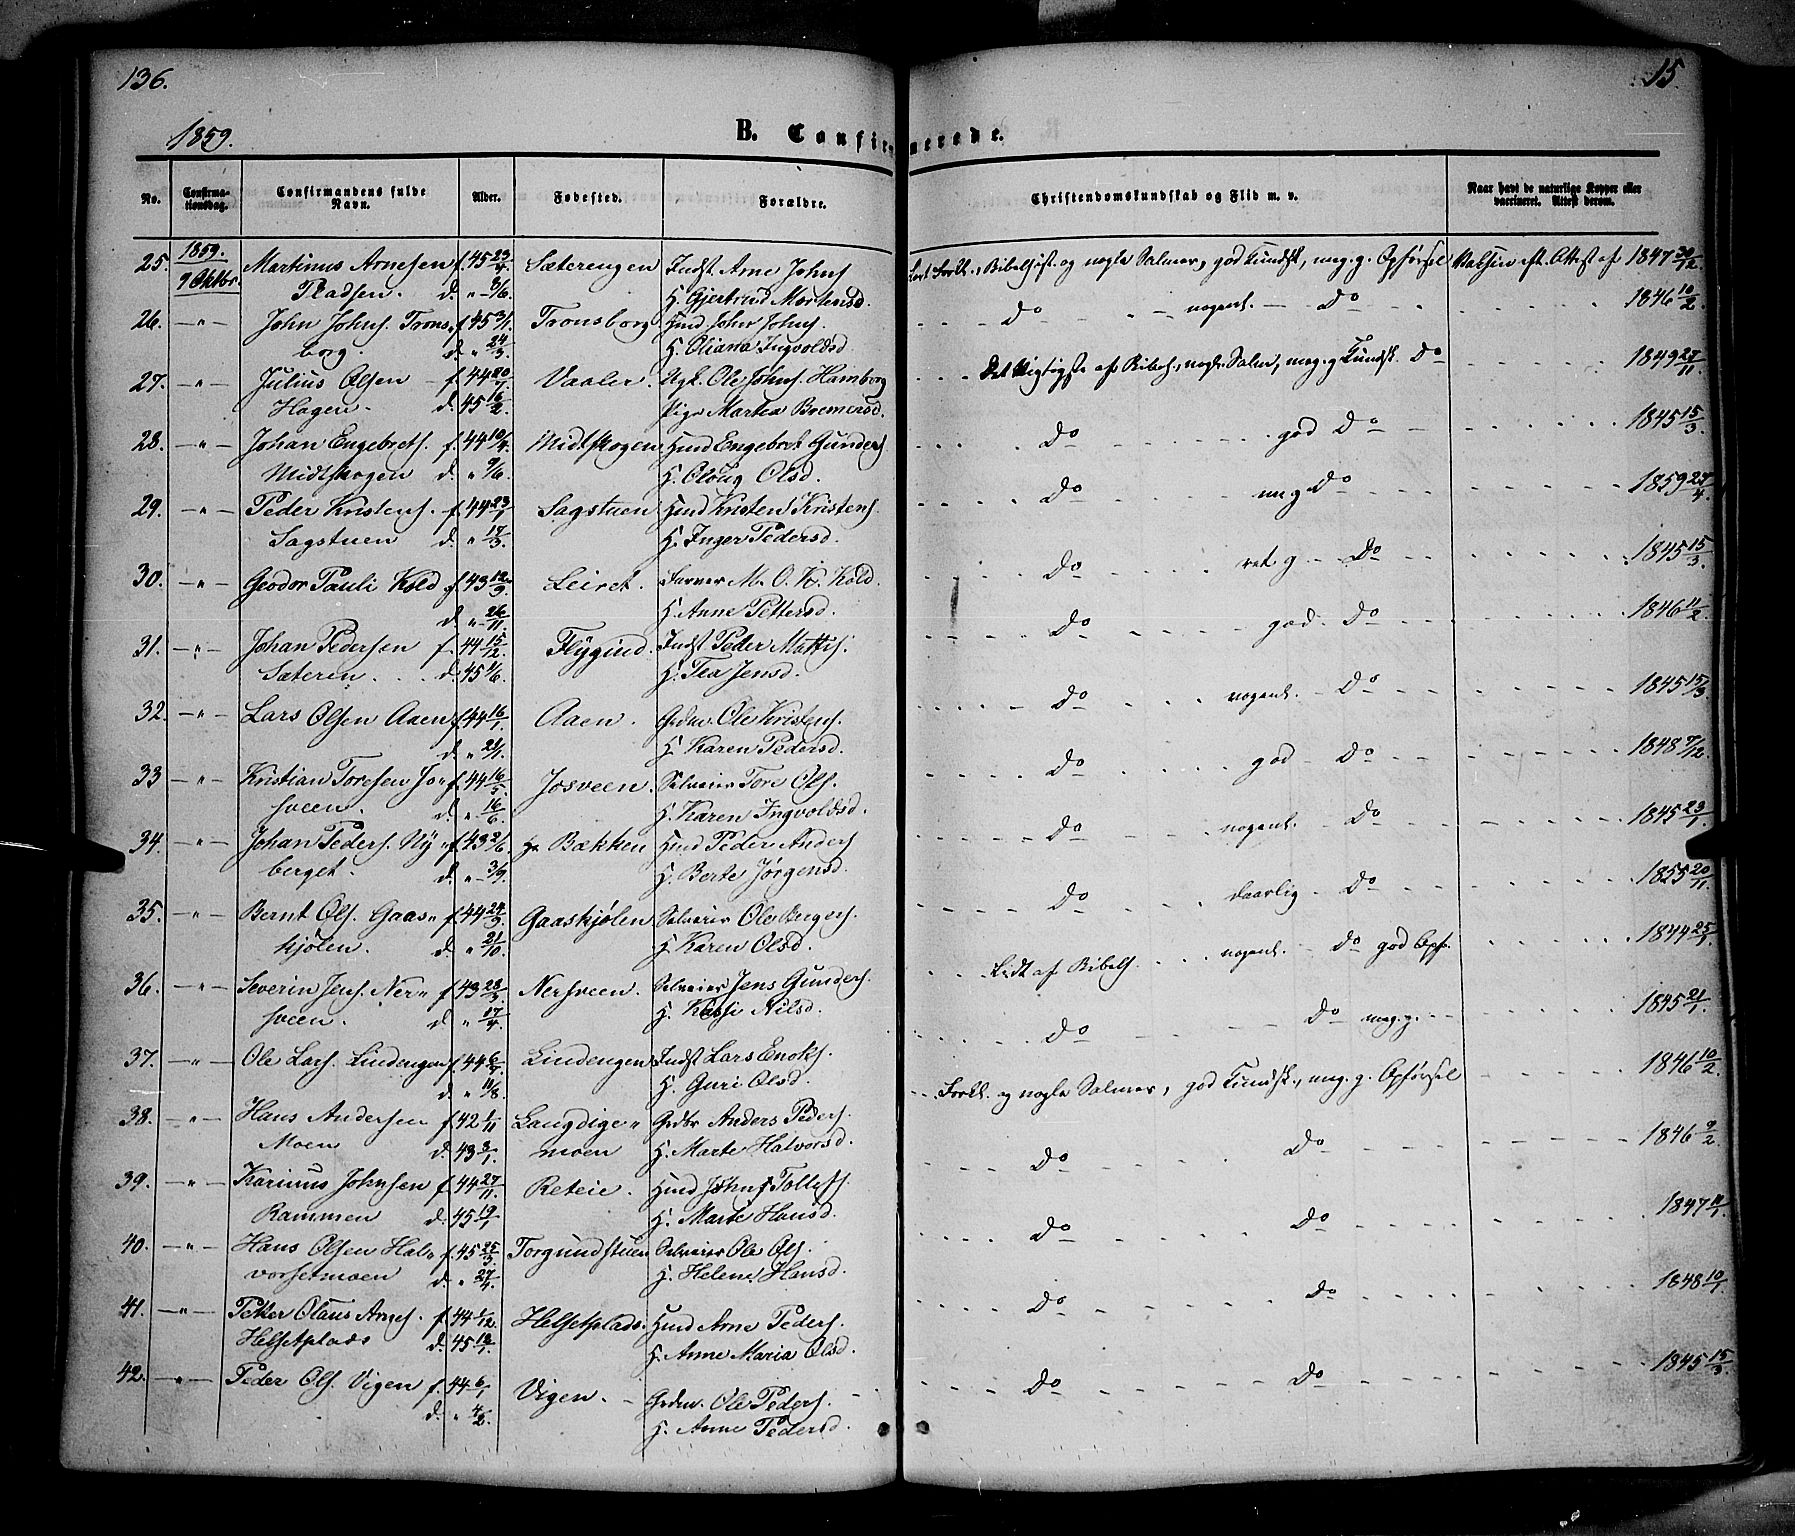 136.
15.
1859.
B. Confirmerede.
No.
Confirmationsdag.
Confirmandens fulde Navn.
Alder.
Fødested.
Forældre.
Christendomskundskab og Flid m. v.
Naar havt de naturlige Kopper eller vaccineret. Attest derom.
25. 1859. Martinus Arnesen f. 45 23/4 Sæterengen Indst. Arne Johns. Forkl., Bibelhist. og nogle Salmer, god Kundsk., meg. g. Opførsel Attest af 1847 30/12
9 Oktbr. Pladsen. d. „ 8/6. H. Gjertrud Mortensd.
26. — „ — John Johns. Trons- f. 45 3/1. Tronsborg Huusd. John Johns. Do nogenl. Do 1846 10/2
borg. d. „ 24/3. H. Oliana Ingvoldsd.
27. — „ — Julius Olsen f. 44 20/7 Vaaler. Ungk. Ole Johns. Hamborg Det Vigtigste af Bibelh., nogle Salm., meg. g. Kundsk. Do 1849 27/11
Hagen. d. 45 16/2. Pige Martea Bremersd.
28. — „ — Johan Engebrets. f. 44 10/4. Midtskogen Huusd. Engebret Gunders. Do god Do 1845 15/3.
Midtskogen d. „ 9/6. H. Oloug Olsd.
29. — „ — Peder Kristens. f. 44 23/1 Sagstuen Huusd. Kristen Kristens. Do meg Do 1859 25/4.
Sagstuen d. „ 17/3. H. Inger Pedersd.
30. — „ — Geodor Pauli Kold f. 43 12/9. Leiret. Farver M. O. K. Kold. Do ret g. Do 1845 15/3.
d. „ 26/11. H. Anne Pettersd.
31. — „ — Johan Pedersen f. 44 15/12. Flygind. Indst. Peder Mattis. Do god. Do 1846 11/2.
Sæteren. d. 45 1/6. H. Tea Jensd.
32. — „ — Lars Olsen Aaen f. 44 16/1 Aaen. Grdm. Ole Kristens. Do nogenl. Do 1845 15/3.
d. „ 21/1. H. Karen Pedersd.
33 — „ — Kristian Toresen Jo- f. 44 16/5. Josveen. Selveier Tore Ols. Do god Do 1848 7/12
sveen. d. „ 16/6. H. Karen Ingvoldsd.
34. — „ — Johan Peders. Ny- f. 43 2/6. Bækken Huusd. Peder Anders. Do nogenl. Do 1845 23/1.
berget. d. „ 3/9. H. Berte Jørgensd.
35. — „ — Bernt Ols. Gaas- f. 44 24/9. Gaaskjølen Selveier Ole Bergers. Do daarlig Do 1855 20/11.
kjølen. d. „ 21/10. H. Karen Olsd.
36. — „ — Severin Jens. Ner- f. 43 28/3. Nersveen. Selveier Jens Gunders. Lidt af Bibelh. nogenl. Do god Opf. 1844 25/1.
sveen. d. „ 17/4. H. Kasji Nilsd.
37. — „ — Ole Lars. Lindengen f. 44 6/7. Lindengen Indst. Lars Enoks. Do Do meg. g. 1845 21/1
d. „ 11/8. H. Guri Olsd.
38. — „ — Hans Andersen f. 42 1/11 Langdige- Grdbr. Anders Peders. Forkl. og nogle Salmer, god Kundsk., meg. g. Opførsel 1846 10/2.
Moen d. 43 8/1. moen H. Marte Halvorsd.
39. — „ — Karinus Johnsen f. 44 27/11. Reteie. Huusd. Johns Tollefs. Do Do 1846 9/2
Rammen d. 45 19/1. H. Marte Hansd.
40. — „ — Hans Olsen Hal- f. 45 25/3. Torgundstuen Selveier Ole Ols. Do Do 1847 11/1.
vorsetmoen d. „ 27/4. H. Helene Hansd.
41. — „ — Petter Olaus Arnes. f. 44 1/12 Helsetplads. Huusd. Arne Peders. Do Do 1848 10/1
Helsetplads d. 45 12/1. H. Anne Maria Olsd.
42. — „ — Peder Ols. Vigen f. 44 6/1 Vigen. Grdm. Ole Peders. Do Do 1845 15/3.
d. „ 4/2. H. Anne Pedersd.